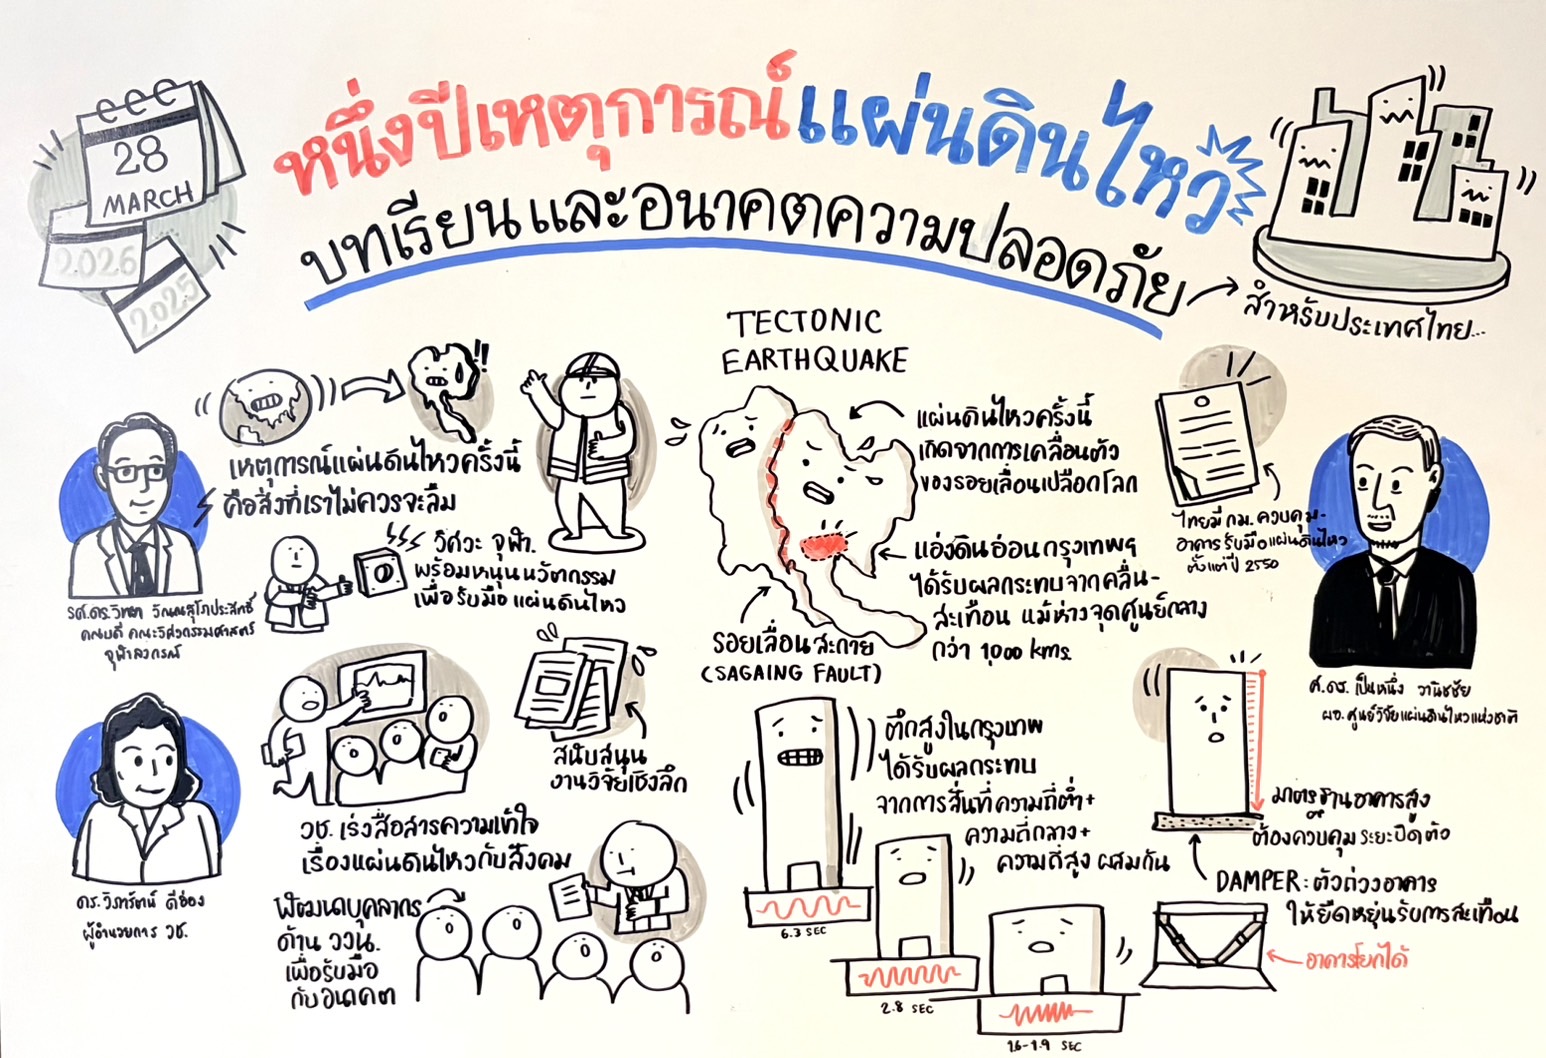 28
MARCH
2026
2025
หนึ่งปีเหตุการณ์แผ่นดินไหว
บทเรียนและอนาคตความปลอดภัย
สำหรับประเทศไทย...
เหตุการณ์แผ่นดินไหวครั้งนี้
คือสิ่งที่เราไม่ควรจะลืม
รศ.ดร.วิทยา วัณณสุโภประสิทธิ์
คณบดี คณะวิศวกรรมศาสตร์
จุฬาลงกรณ์
วิศวะ จุฬา.
พร้อมหนุนนวัตกรรม
เพื่อรับมือแผ่นดินไหว
สนับสนุน
งานวิจัยเชิงลึก
ดร.วิภารัตน์ ดีอ่อง
ผู้อำนวยการ วช.
วช. เร่งสื่อสารความเข้าใจ
เรื่องแผ่นดินไหวกับสังคม
พัฒนาบุคลากร
ด้าน ววน.
เพื่อรับมือ
กับอนาคต
TECTONIC
EARTHQUAKE
แผ่นดินไหวครั้งนี้
เกิดจากการเคลื่อนตัว
ของรอยเลื่อนเปลือกโลก
แอ่งดินอ่อนกรุงเทพฯ
ได้รับผลกระทบจากคลื่น-
สะเทือน แม้ห่างจุดศูนย์กลาง
กว่า 1,000 kms.
รอยเลื่อนสะกาย
(SAGAING FAULT)
ตึกสูงในกรุงเทพ
ได้รับผลกระทบ
จากการสั่นที่ความถี่ต่ำ+
ความถี่กลาง+
ความถี่สูง ผสมกัน
6.3 SEC
2.8 SEC
1.6-1.9 SEC
ไทยมี กม. ควบคุม-
อาคารรับมือแผ่นดินไหว
ตั้งแต่ปี 2550
ศ.ดร. เป็นหนึ่ง วานิชชัย
ผอ. ศูนย์วิจัยแผ่นดินไหวแห่งชาติ
มาตรฐานอาคารสูง
ต้องควบคุมระยะบิดตัว
DAMPER: ตัวถ่วงอาคาร
ให้ยืดหยุ่นรับการสะเทือน
อาคารโยกได้